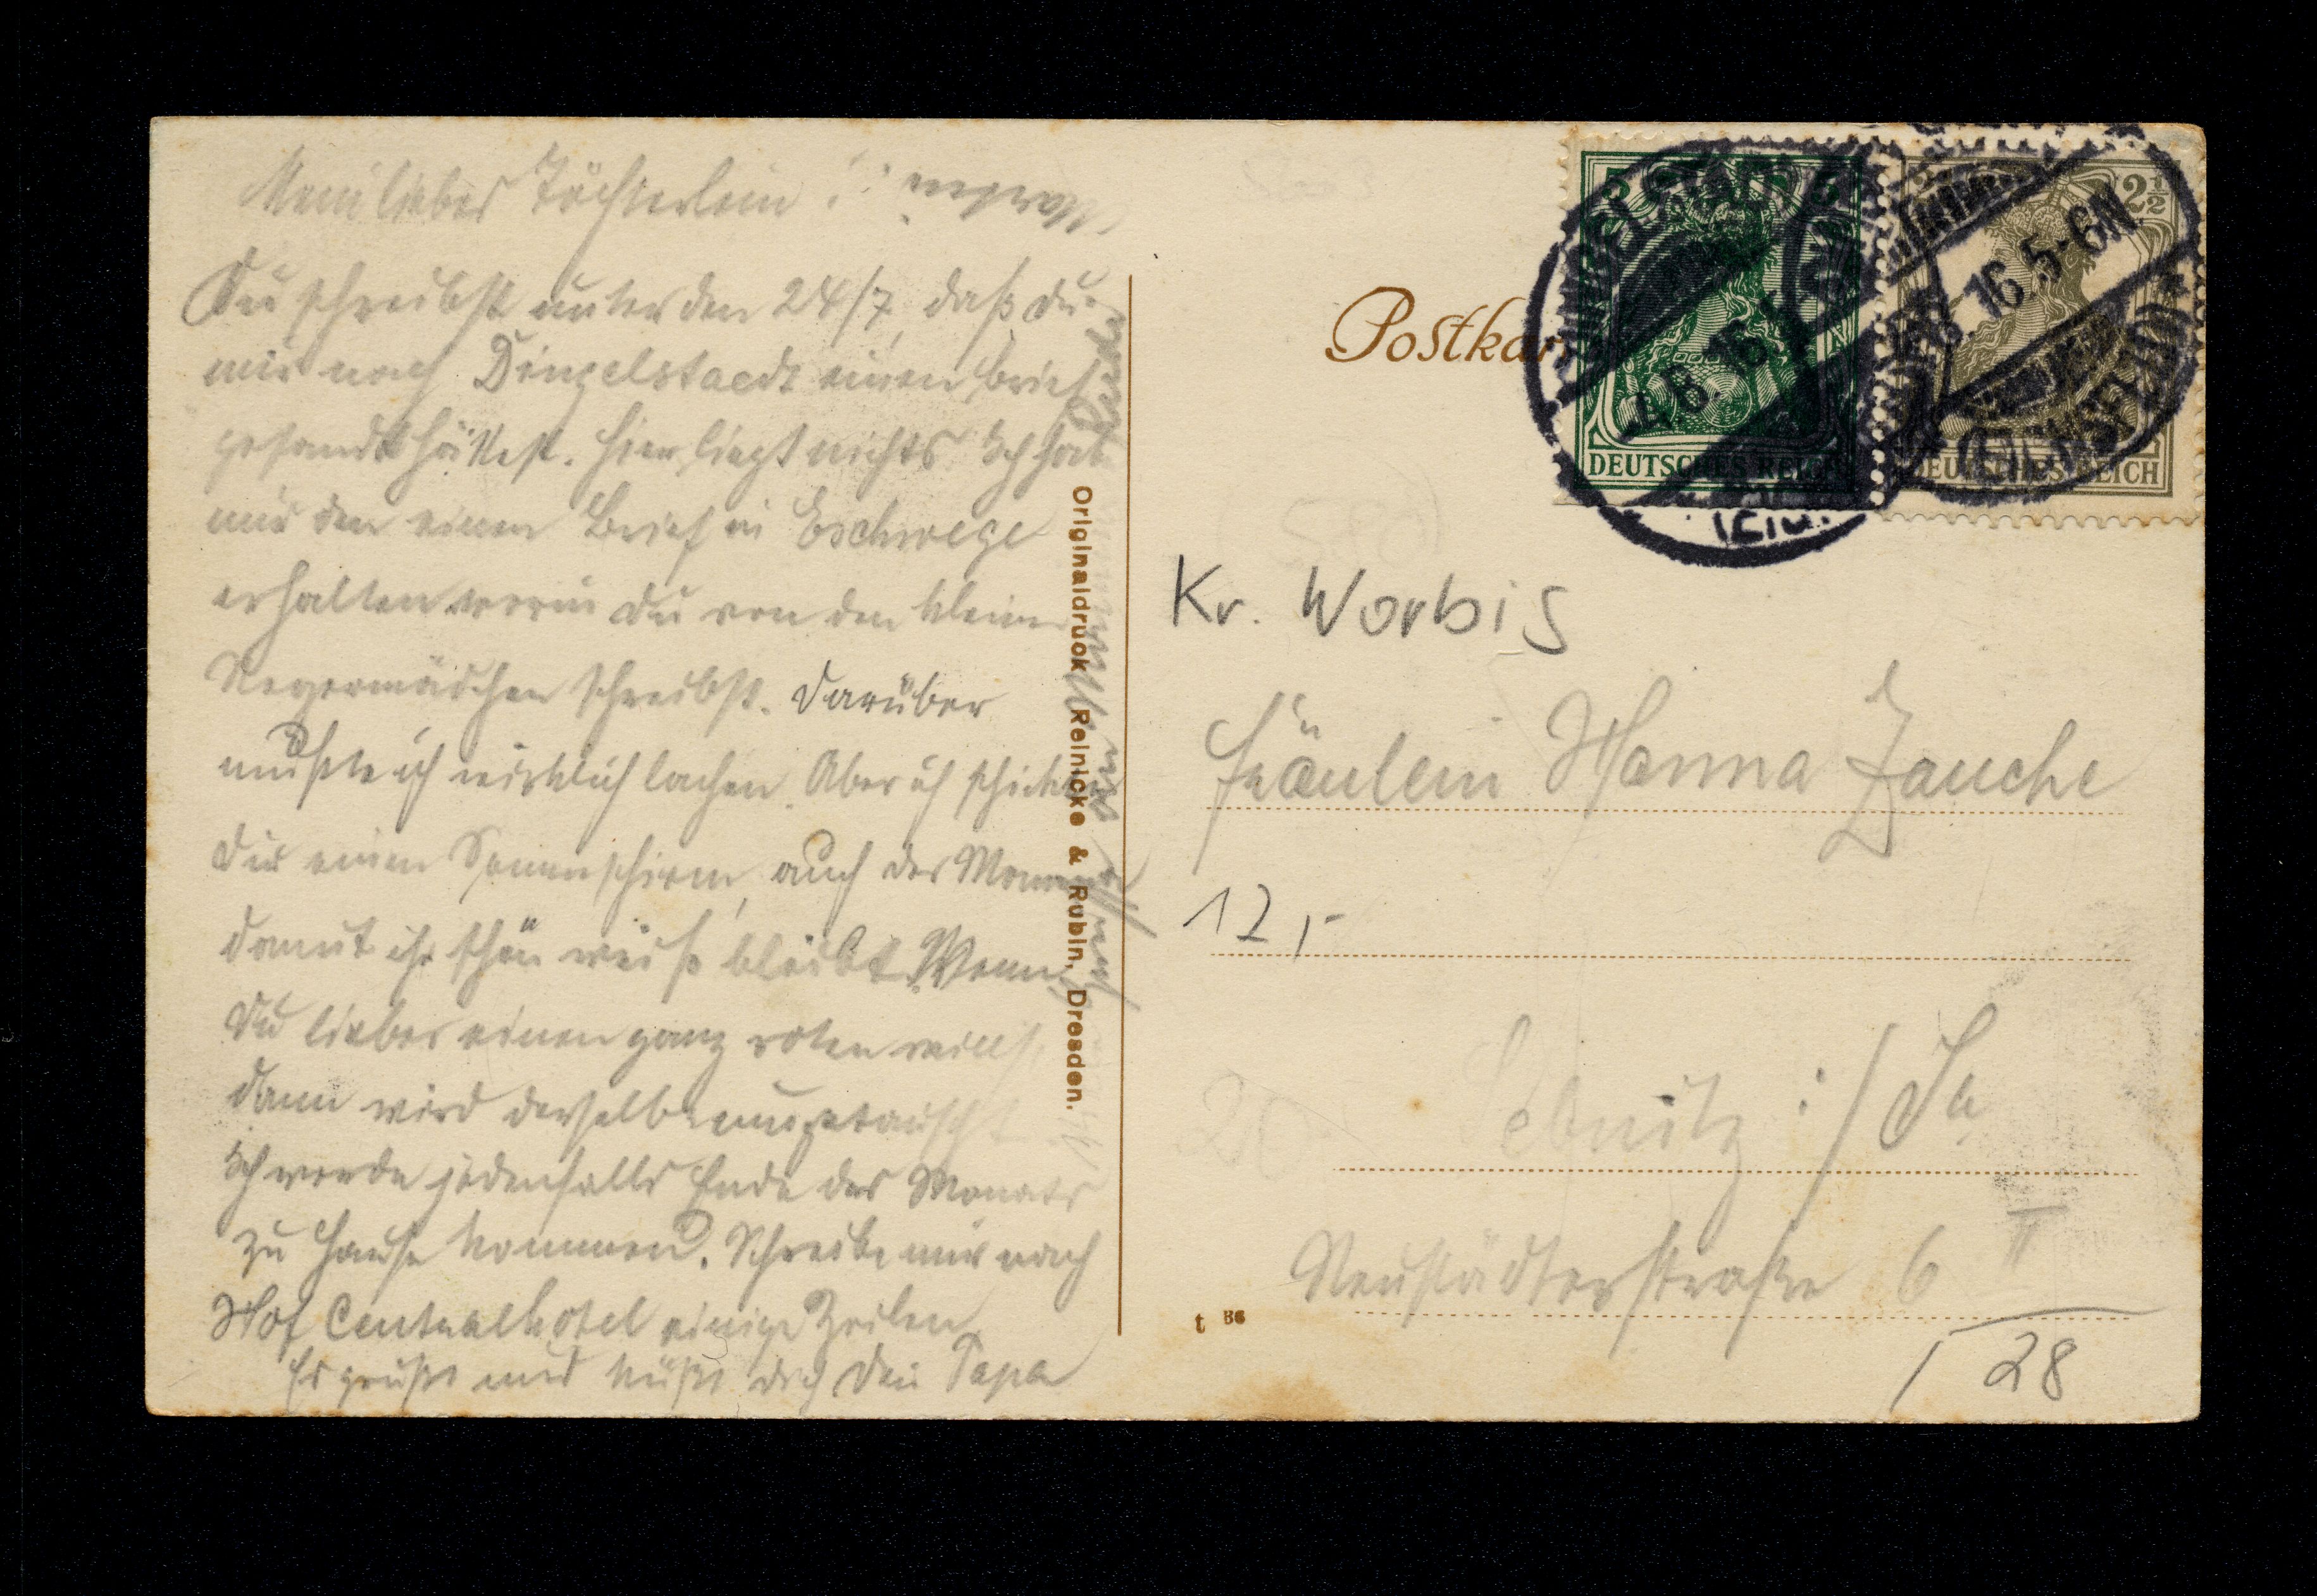 Mein liebes Töchterlein!
Du schreibst unter den 24/7, daß du
mir nach Dingelstaedt einen Brief
gesandt hättest. Hier liegt nichts Ich hab
nur den einen Brief in Eschwege
erhalten worin du von den kleinen
Negermädchen schreibst. Darüber
mußte ich wirklich lachen. Aber ich schicke
Dir einen Sonnenschirm, auch der Mama
damit ihr schön weiß bleibt. Wenn
Du lieber einen ganz roten willst,
dann wird derselbe umgetauscht
Ich werde jedenfalls Ende des Monats
zu Hause kommen. Schreibe mir nach
Hof Centralhotel einige Zeilen.
Es grüßt und küßt dich Dein Papa
Originaldruck Reinicke & Rubin, Dresden.
Postkar
5
DEUTSCHES REICH
4.8.16
2½
DEUTSCHES REICH
8.16.5-6N
(EICHSFELD)
Kr. Worbis
Fräulein Hanna Zauche
12,-
Sebnitz i/Sa
20
Neustädterstraße 6 II
t B6
28